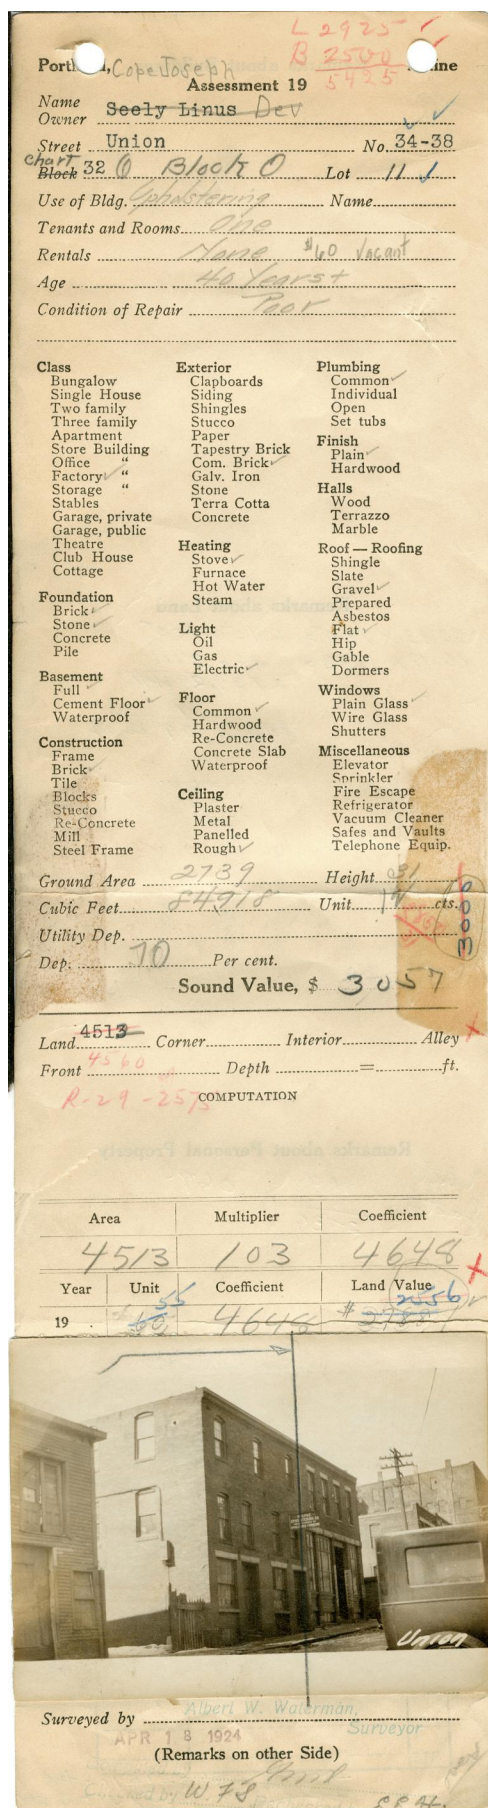 L 2925
B 2500
5425
Portland, Cope Joseph Maine
Assessment 19
Name
Owner Seely Linus Dev
Street Union No. 34-38
Chart
Block 32 O Block O Lot 11
Use of Bldg. Upholstering Name
Tenants and Rooms One
Rentals None $60 Vacant
Age 40 Years+
Condition of Repair Poor
Class
Bungalow
Single House
Two family
Three family
Apartment
Store Building
Office "
Factory "
Storage "
Stables
Garage, private
Garage, public
Theatre
Club House
Cottage
Foundation
Brick
Stone
Concrete
Pile
Basement
Full
Cement Floor
Waterproof
Construction
Frame
Brick
Tile
Blocks
Stucco
Re-Concrete
Mill
Steel Frame
Exterior
Clapboards
Siding
Shingles
Stucco
Paper
Tapestry Brick
Com. Brick
Galv. Iron
Stone
Terra Cotta
Concrete
Heating
Stove
Furnace
Hot Water
Steam
Light
Oil
Gas
Electric
Floor
Common
Hardwood
Re-Concrete
Concrete Slab
Waterproof
Ceiling
Plaster
Metal
Panelled
Rough
Plumbing
Common
Individual
Open
Set tubs
Finish
Plain
Hardwood
Halls
Wood
Terrazzo
Marble
Roof — Roofing
Shingle
Slate
Gravel
Prepared
Asbestos
Flat
Hip
Gable
Dormers
Windows
Plain Glass
Wire Glass
Shutters
Miscellaneous
Elevator
Sprinkler
Fire Escape
Refrigerator
Vacuum Cleaner
Safes and Vaults
Telephone Equip.
Ground Area 2739 Height 31
Cubic Feet 84918 Unit cts.
3000
Utility Dep.
Dep. 70 Per cent.
Sound Value, $ 3057
Land 4513 Corner Interior Alley
Front 4560 Depth = ft.
R-29-2575
COMPUTATION
Area Multiplier Coefficient
4513 103 4648
Year Unit Coefficient Land Value
55 2556
19 60 4648 $
Union
Surveyed by Albert W. Waterman,
Surveyor
APR 18 1924
(Remarks on other Side)
Checked by W. F S